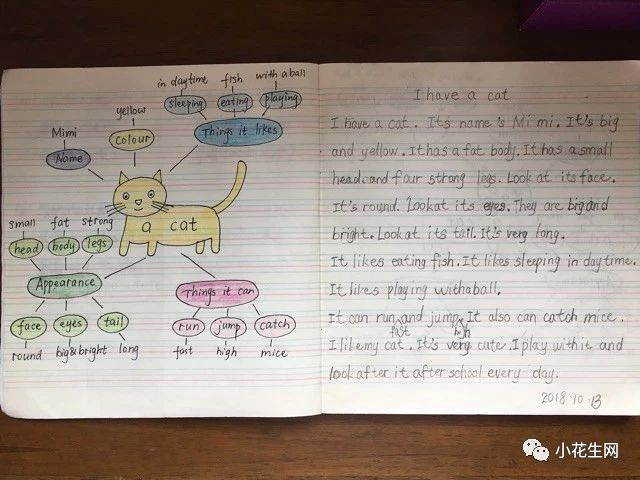 in daytime
fish
with a ball
sleeping
eating
playing
Things it likes
yellow
colour
Mimi
Name
a cat
small
fat
strong
head
body
legs
Appearance
face
eyes
tail
round
big&bright
long
Things it can
run
jump
catch
fast
high
mice
I have a cat
I have a cat. Its name's Mimi. It's big
and yellow. It has a fat body. It has a small
head and four strong legs. Look at its face.
It's round. Look at its eyes. They are big and
bright. Look at its tail. It's very long.
It likes eating fish. It likes sleeping in daytime.
It likes playing with a ball.
It can run and jump. It also can catch mice.
fast high
I like my cat. It's very cute. I play with it and
look after it after school every day.
2018.10.13
小花生网